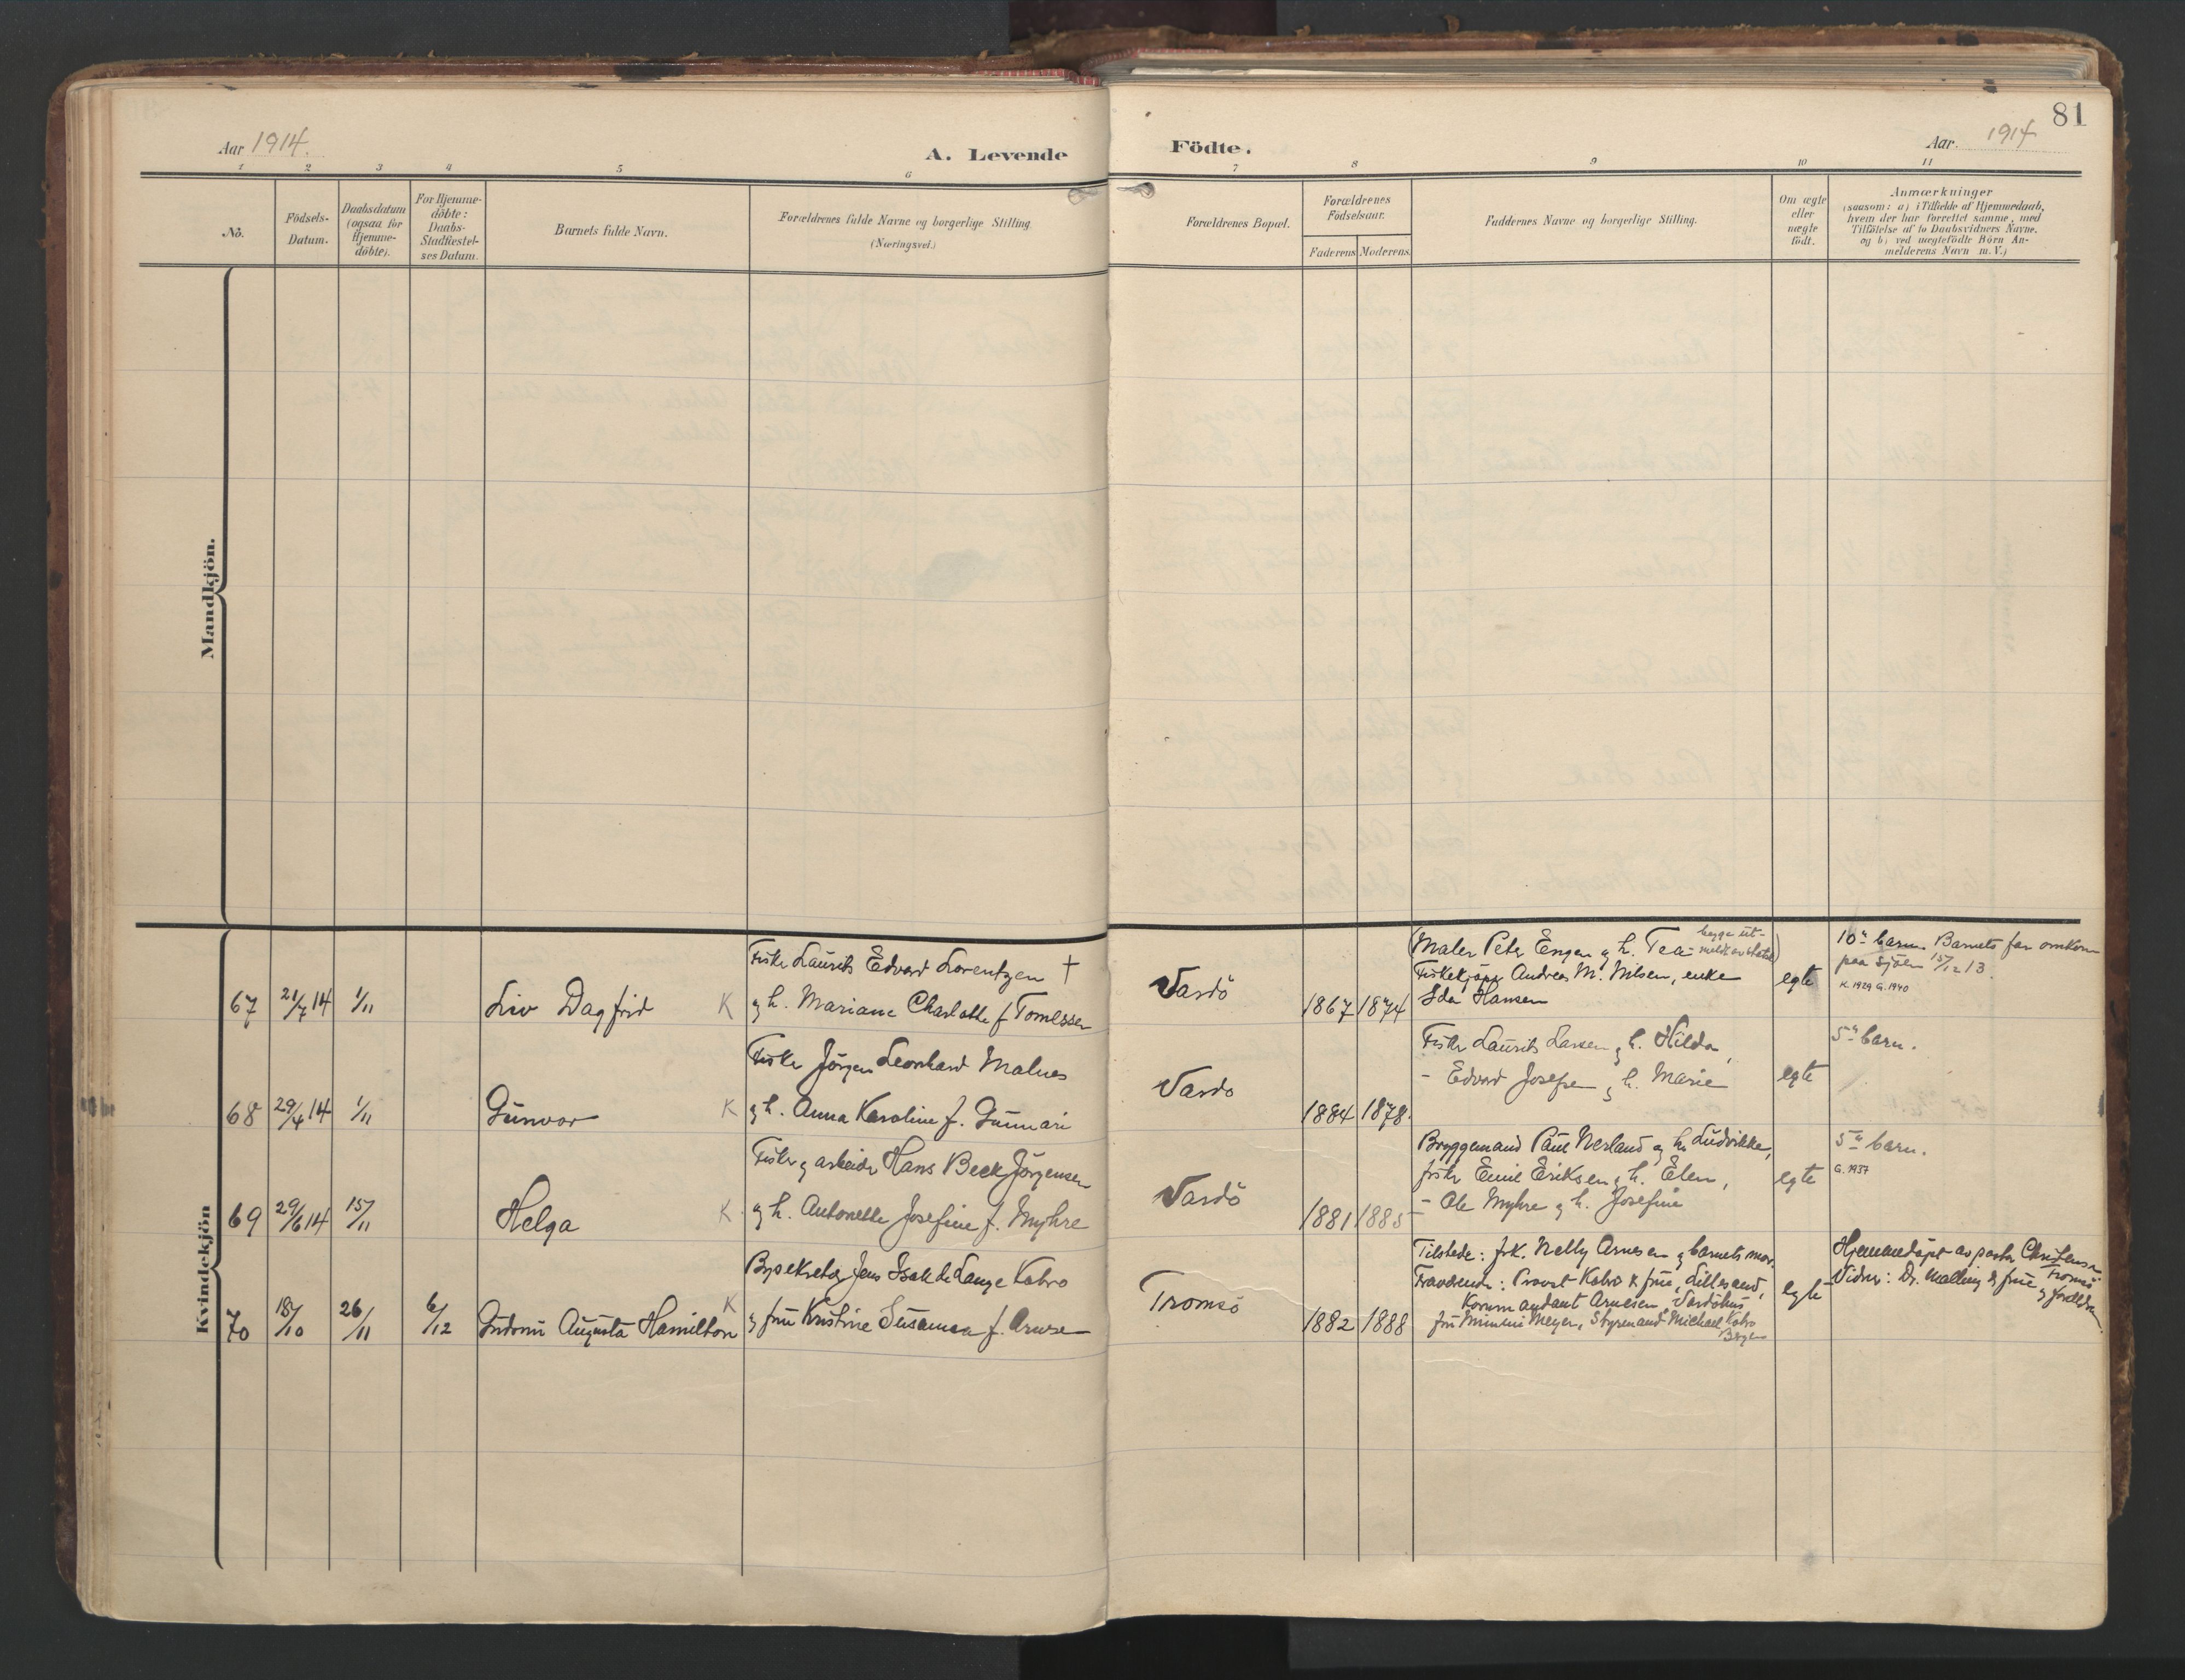 81
Aar 1914.
A. Levende
Födte.
Aar. 1914
1 2 3 4 5 6 7 8 9 10 11
No.
Födsels-
Datum.
Daabsdatum
(ogsaa for
Hjemme-
döbte).
For Hjemme-
döbte:
Daabs-
Stadfæstel-
ses Datum.
Barnets fulde Navn.
Forældrenes fulde Navne og borgerlige Stilling
(Næringsvei.)
Forældrenes Bopæl.
Forældrenes
Födselsaar.
Faderens Moderens
Faddernes Navne og borgerlige Stilling.
Om ægte
eller
uægte
födt.
Anmærkninger
(saasom: a) i Tilfælde af Hjemmedaab,
hvem der har forrettet samme, med
Tilföielse af to Daabsvidners Navne,
og b) ved uægtefödte Börn An-
melderens Navn m. V.)
Mandkjön.
Kvindekjön
67 21/7 14 1/11 Liv Dagfrid K
Fisker Laurits Edvard Lorentzen †
og h. Mariane Charlotte f. Tomessen
Vardö
1867 1874
(Maler Peter Engen og h. Tea - begge ut-
meldt av statsk)
Fiskekjöper Andreas M. Nilsen, enke
Ida Hansen
egte
10de barn. Barnets far omkom
paa sjöen 15/12 13.
K. 1929 G. 1940
68 29/4 14 1/11 Gunvor K
Fisker Jörgen Leonhard Malnes
og h. Anna Karoline f. Gunnari
Vardö
1884 1878.
Fisker Laurits Larsen og h. Hilda,
- Edvard Josefsen og h. Marie
egte
5te barn.
69 29/6 14 15/11 Helga K
Fisker og arbeider Hans Beck Jörgensen
og h. Antonette Josefine f. Myhre
Vardö
1881 1885
Bryggemand Paul Nerland og h. Ludvikke,
fisker Emil Eriksen og h. Elen,
- Ole Myhre og h. Josefine
egte
5te barn.
G. 1937
70 18/10 26/11 6/12 Gudrun Augusta Hamilton K
Bysekretær Jens Isak de Lange Kobro
og fru Kristine Susanna f. Arnesen
Tromsö
1882 1888
Tilstede: frk. Nelly Arnesen og barnets mor.
Fraværende: Provst Kobro & frue, Lillesand,
Kommandant Arnesen, Vardöhus
fru Mimmi Meyer, Styrmand Michael Kobro
Bergen
egte
Hjemmedöpt av pastor Chr. Jensen
Tromsö
Vidner: Dr. Malling & frue
og foreldre.